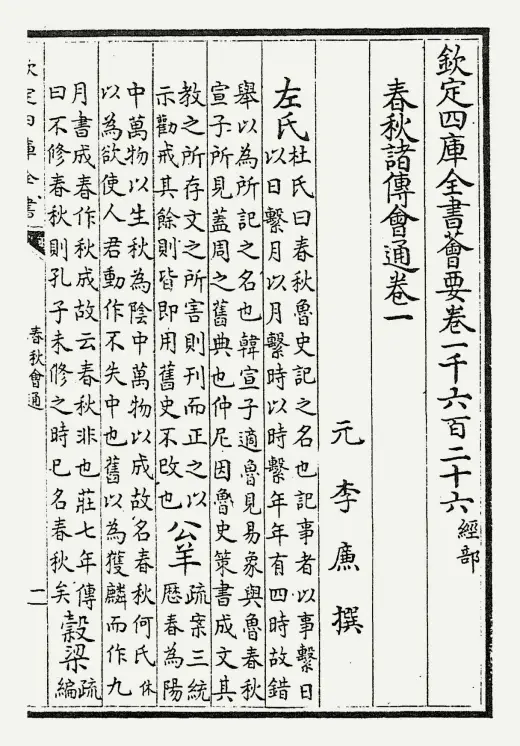 欽定四庫全書薈要卷一千六百二十六經部
春秋諸傳會通卷一
元李廉撰
左氏
杜氏曰春秋魯史記之名也記事者以事繫日
以日繫月以月繫時以時繫年年有四時故錯
舉以為所記之名也韓宣子適魯見易象與魯春秋
宣子所見蓋周之舊典也仲尼因魯史策書成文其
教之所存文之所害則刊而正之以
示勸戒其餘則皆即用舊史不改也
公羊
疏案三統
厯春為陽
中萬物以生秋為陰中萬物以成故名春秋何氏休
以為欲使人君動作不失中也舊以為獲麟而作九
月書成春作秋成故云春秋非也莊七年傳
曰不修春秋則孔子未修之時已名春秋矣
穀梁
疏
編
欽定四庫全書
春秋會通
二